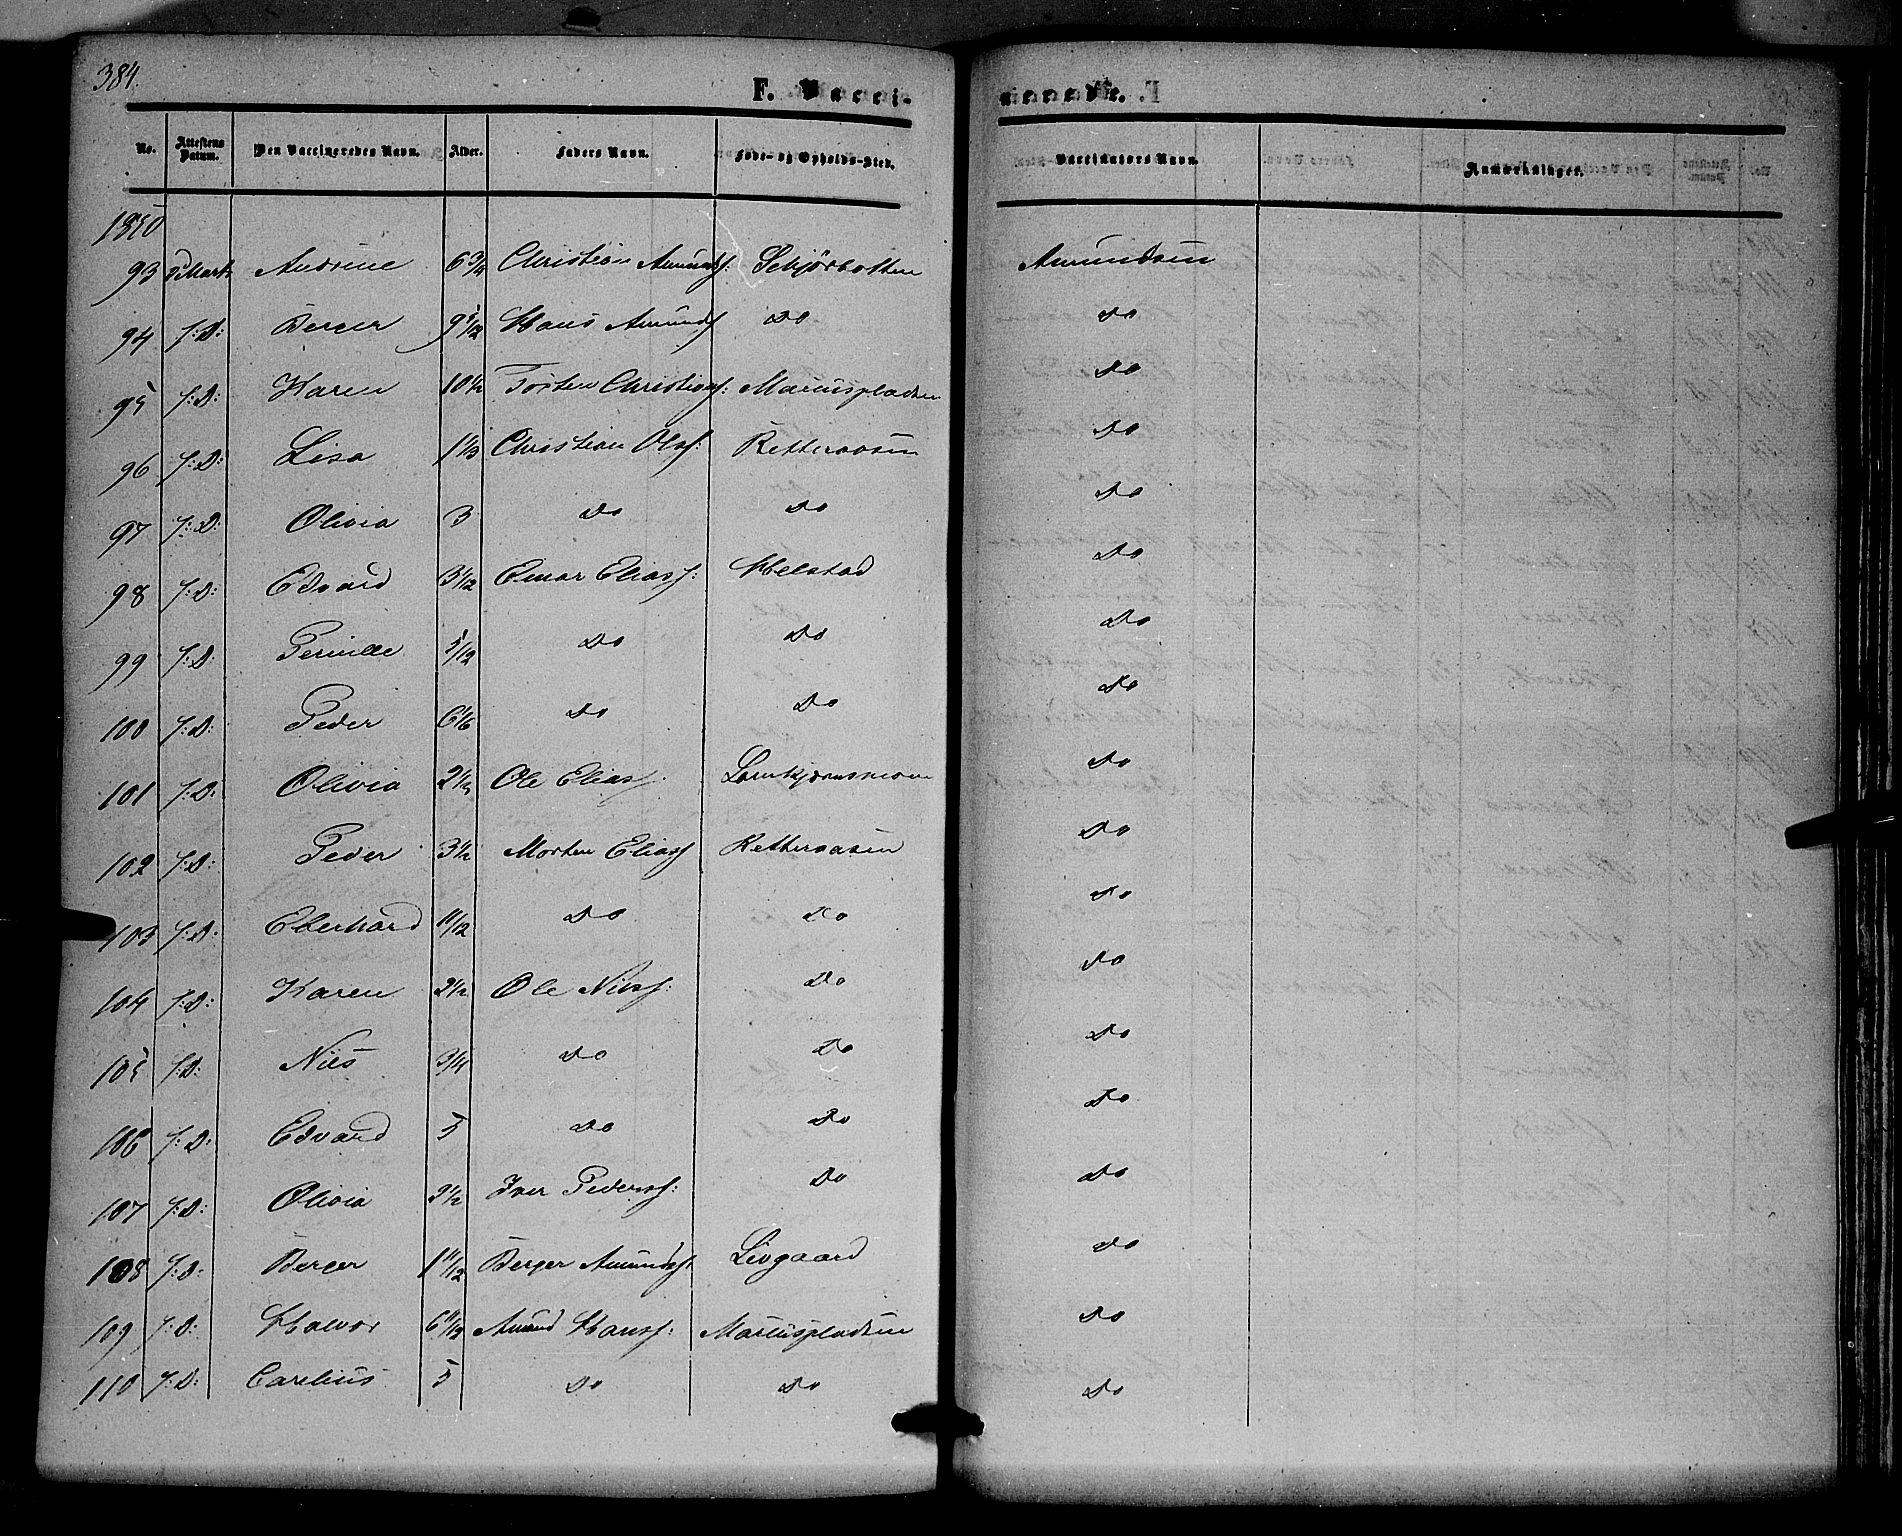 384.
F. Vacci-
nerede.
No. Attestens Datum. Den Vaccineredes Navn. Alder. Faders Navn. Føde- og Opholds-Sted. Vaccinators Navn. Anmærkninger.
1850
93 Marts Andrine 6 3/4 Christian Amunds: Amundsen
94 J:D: Berger 9 Hans Amunds Do Do
95 J:D: Karen 10 1/2 Torsten Christians: Mariuspladsen Do
96 J:D: Lisa 1 1/3 Christian Ols: Retteraasen Do
97 J:D: Olivia 3 Do Do Do
98 J:D: Edvard 3 1/12 Einar Elias: Helstad Do
99 J:D: Pernille 5/12 Do Do Do
100 J:D: Peder 6 1/6 Do Do Do
101 J:D: Olivia 2 1/3 Ole Elias Do
102 J:D: Peder 3 1/2 Morten Elias Retteraasen Do
103 J:D: Eberhard 11/12 Do Do Do
104 J:D: Karen 2 1/2 Ole Nils: Do Do
105 J:D: Nils 3/4 Do Do Do
106 J:D: Edvard 5 Do Do Do
107 J:D: Olivia 3 1/2 Iver Peders: Do Do
108 J:D: Berger 1 11/12 Berger Amunds: Livgaard Do
109 J:D: Halvor 6 11/12 Amund Hans: Mariuspladsen Do
110 J:D: Carelius 5 Do Do Do